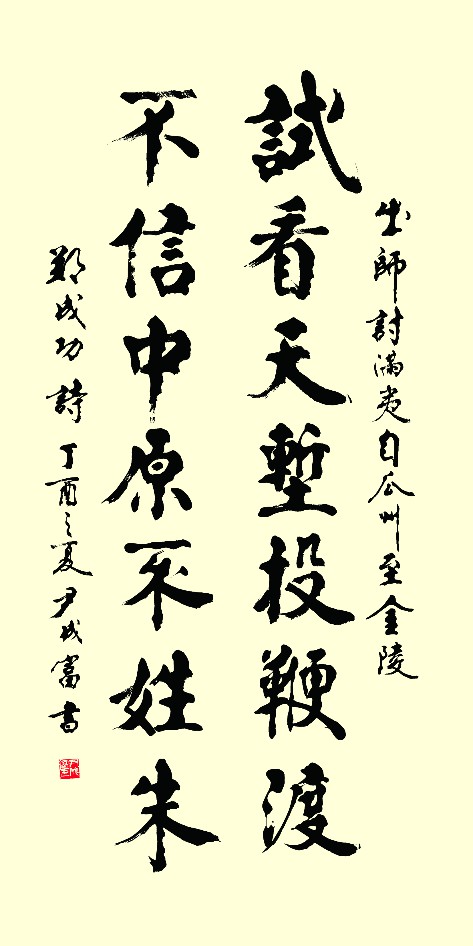 出師討滿夷自瓜州至金陵
試看天塹投鞭渡
不信中原不姓朱
鄭成功詩丁酉之夏尹成富書